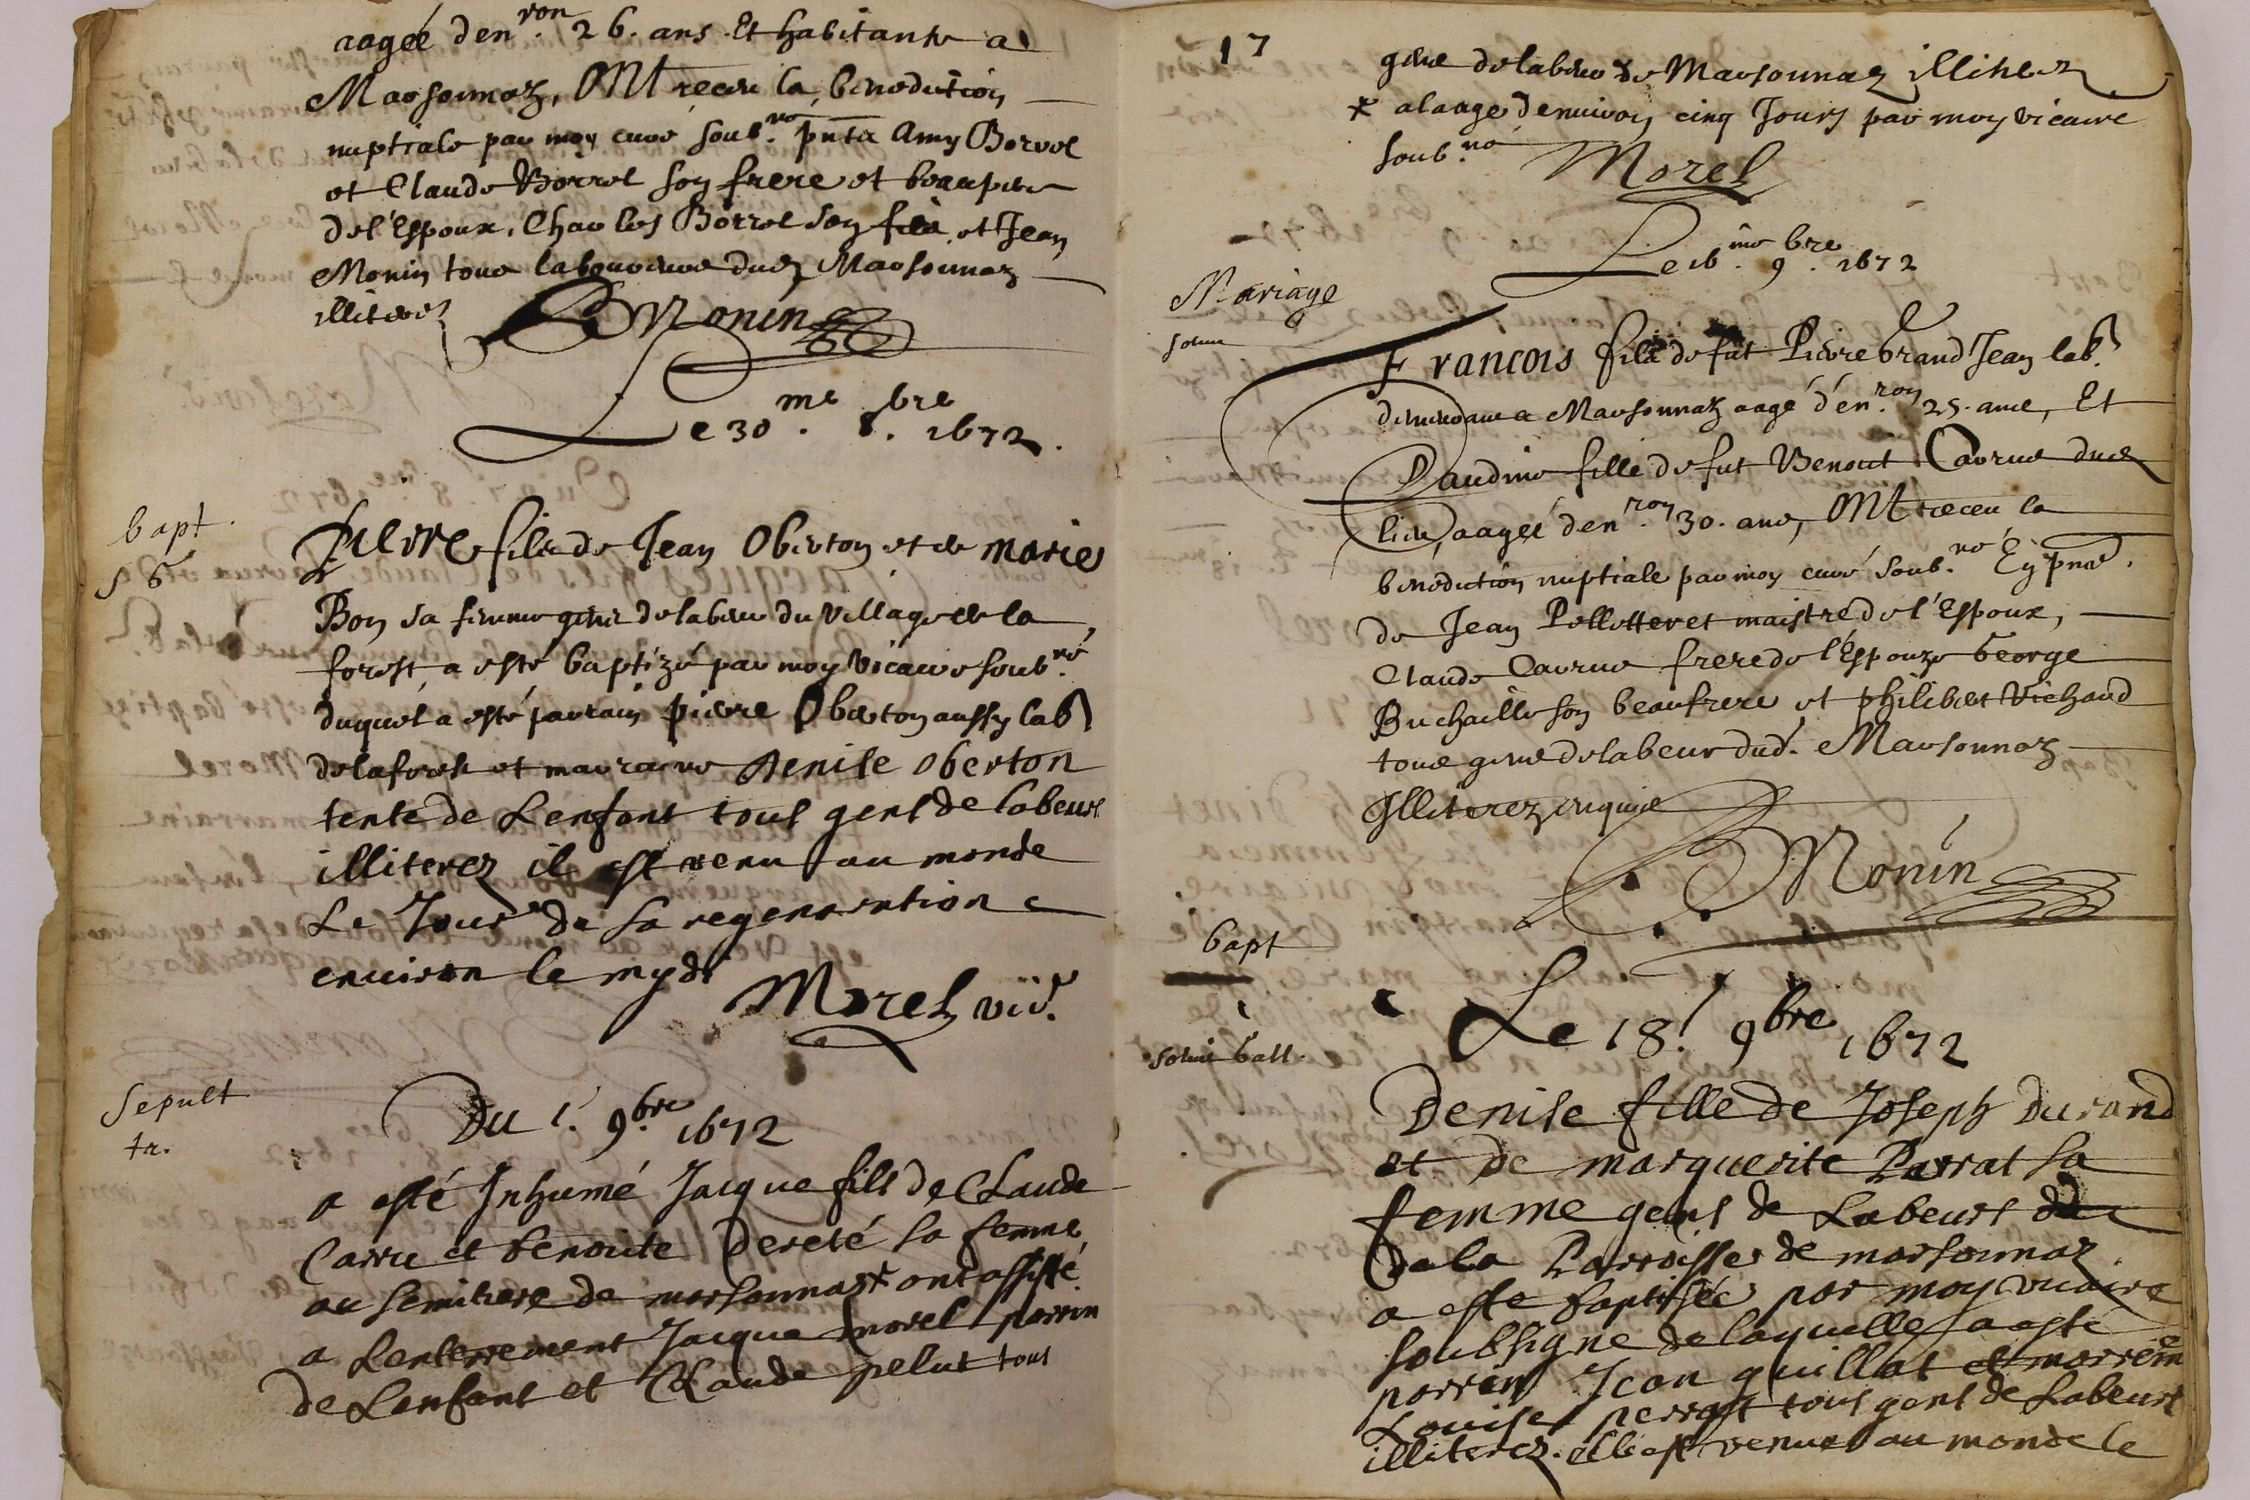 aagée d'en.ron 26. ans. Et habitante a
Marsonnaz, Ont receu la benediction
nuptiale par moy curé soub.né pnts Amy Borrel
et Claude Borrel son frere et beaupere
de l'Espoux, Charles Borrel son fils et Jean
Monin tous laboureurs dud Marsonnaz
illiterez Monin
Le 30.me 8.bre 1672.
bapt.
s 6
Pierre fils de Jean Oberton et de marie
Bon sa femme gens de labeur du village de la
forest, a esté baptizé par moy vicaire soub.né
duquel a esté parrain pierre Oberton aussy lab
de la forest et marraine Denise Oberton
tente de Lenfant tous gens de labeurs
illiterez il est venu au monde
Le Jour de sa regeneration
enuiron le mydi
Morel vic.
Sepult
tr.
Du 1. 9.bre 1672
a esté Inhumé Jacque fils de Claude
Carru et benoite Dereté sa femme
au semitiere de marsonnas * ont assisté
a Lenterrement Jacque morel parrin
de Lenfant et Claude pelut tous
17
gens de labeur de Marsonnaz illiterez
* a laage denuiron cinq Jours par moy vicaire
soub.né Morel
Le 16.me 9.bre 1672
Mariage
solui
Francois fils de fut Pierre brand Jean lab.
demeurant a Marsonnaz aagé d'en.ron 25. ans, Et
Claudine fille de fut Benoit Carrue dud
lieu, aagée d'en.ron 30. ans, Ont receu la
benediction nuptiale par moy curé soub.né En pnce.
de Jean Pelletteret maistre de l'Espoux,
Claude Carrue frere de l'Espouze George
Buchaille son beaufrere et philibert Vichaud
tous gens de labeur dud. Marsonnaz
Illiterez enquis
Monin
bapt
solui batt.
Le 18. 9bre 1672
Denise fille de Joseph Durand
et de marguerite Perrat sa
femme gens de Labeurs
de la Parroisse de marsonnaz
a este baptisée par moy vicaire
soubsigne de laquelle a esté
parrin Jean guillot et marreine
Louise perrat tous gens de Labeurs
illiterez. elle est venue au monde le